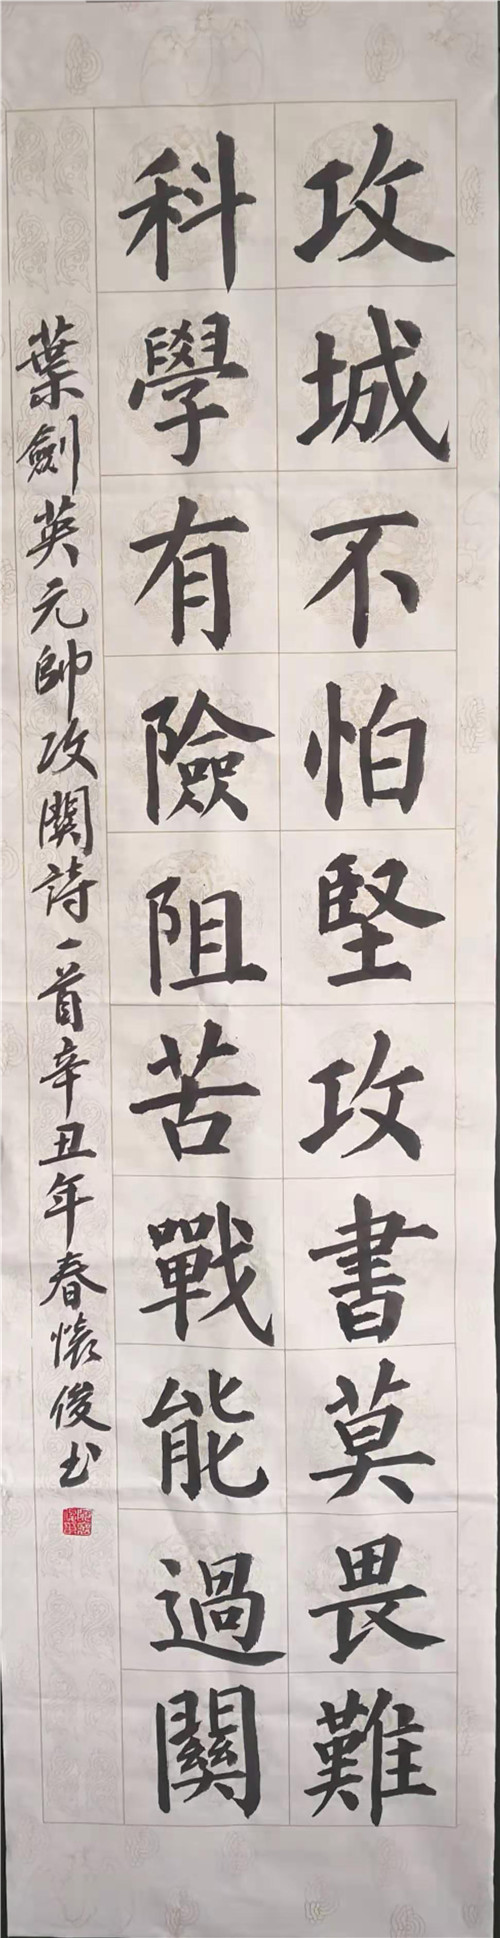 攻城不怕堅攻書莫畏難
科學有險阻苦戰能過關
葉劍英元帥攻關詩一首辛丑年春懷俊书